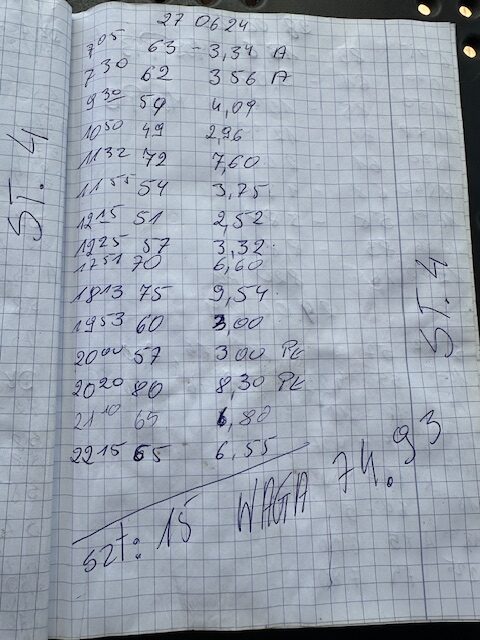 27 06 24
7 05 63 - 3,34 A
7 30 62 3 56 A
9 30 59 4,09
10 50 49 2,96
11 32 72 7,60
11 55 54 3,75
12 15 51 2,52
12 25 57 3,32
17 51 70 6,60
18 13 75 9,54
19 53 60 3,00
20 00 57 3 00 PŁ
20 20 80 8,30 PŁ
21 10 65 6,80
22 15 65 6,55
szt: 15 WAGA 74.93
ST. 4
ST. 4